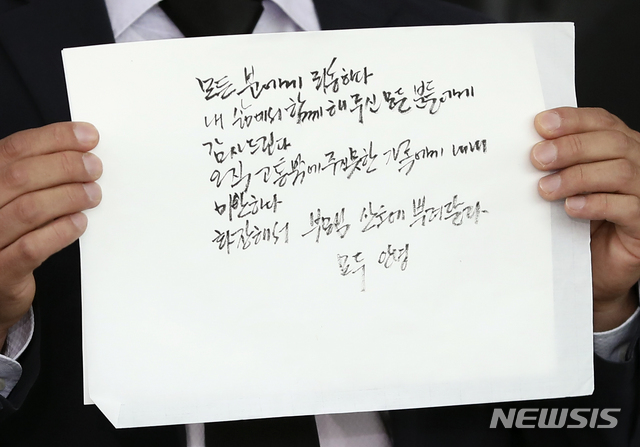 모든 분에게 죄송하다
내 삶에서 함께 해 주신 모든 분들에게
감사드린다
오직 고통밖에 주지 못한 가족에게 내내
미안하다
화장해서 부모님 산소에 뿌려달라
모두 안녕
NEWSIS